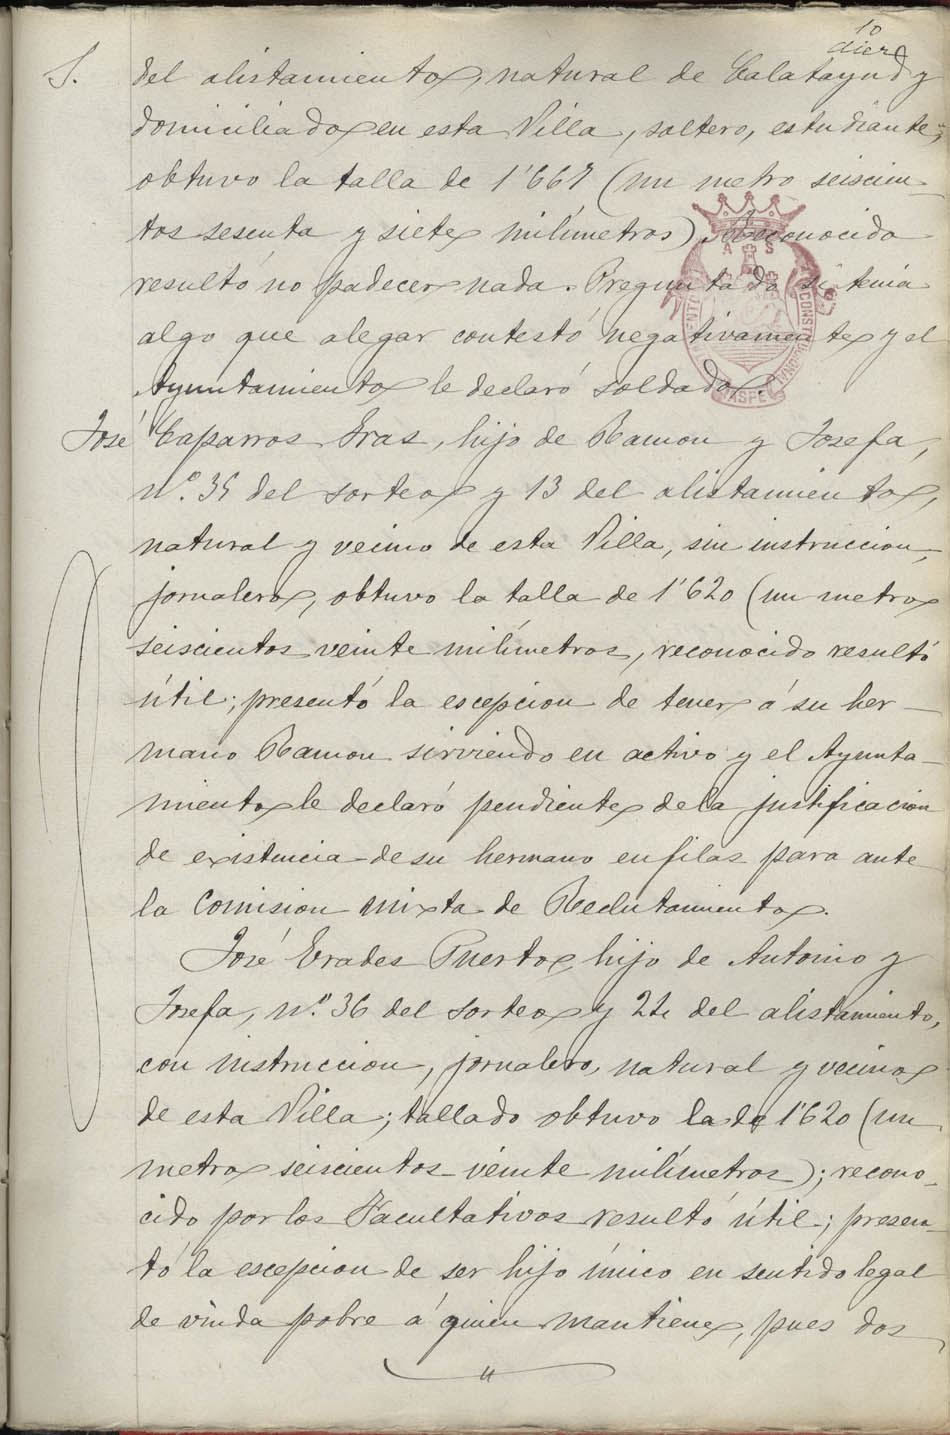 10
diez
S. del alistamiento, natural de Calatayud y
domiciliado en esta Villa, soltero, estudiante,
obtuvo la talla de 1'667 (un metro seiscien-
tos sesenta y siete milímetros). Reconocido
resultó no padecer nada. Preguntado si tenia
algo que alegar contestó negativamente y el
Ayuntamiento le declaró soldado.
José Caparros Fras, hijo de Ramon y Josefa,
nº. 35 del sorteo y 13 del alistamiento,
natural y vecino de esta Villa, sin instruccion,
jornalero, obtuvo la talla de 1'620 (un metro
seiscientos veinte milímetros, reconocido resultó
útil; presentó la escepcion de tener á su her-
mano Ramon sirviendo en activo y el Ayunta-
miento le declaró pendiente de la justificacion
de existencia de su hermano en filas para ante
la Comision mixta de Reclutamiento.
José Erades Puerto, hijo de Antonio y
Josefa, nº. 36 del sorteo y 22 del alistamiento,
con instruccion, jornalero, natural y vecino
de esta Villa; tallado obtuvo la de 1'620 (un
metro seiscientos veinte milímetros); recono-
cido por los Facultativos resultó útil; presen-
tó la escepcion de ser hijo único en sentido legal
de viuda pobre á quien mantiene, pues dos